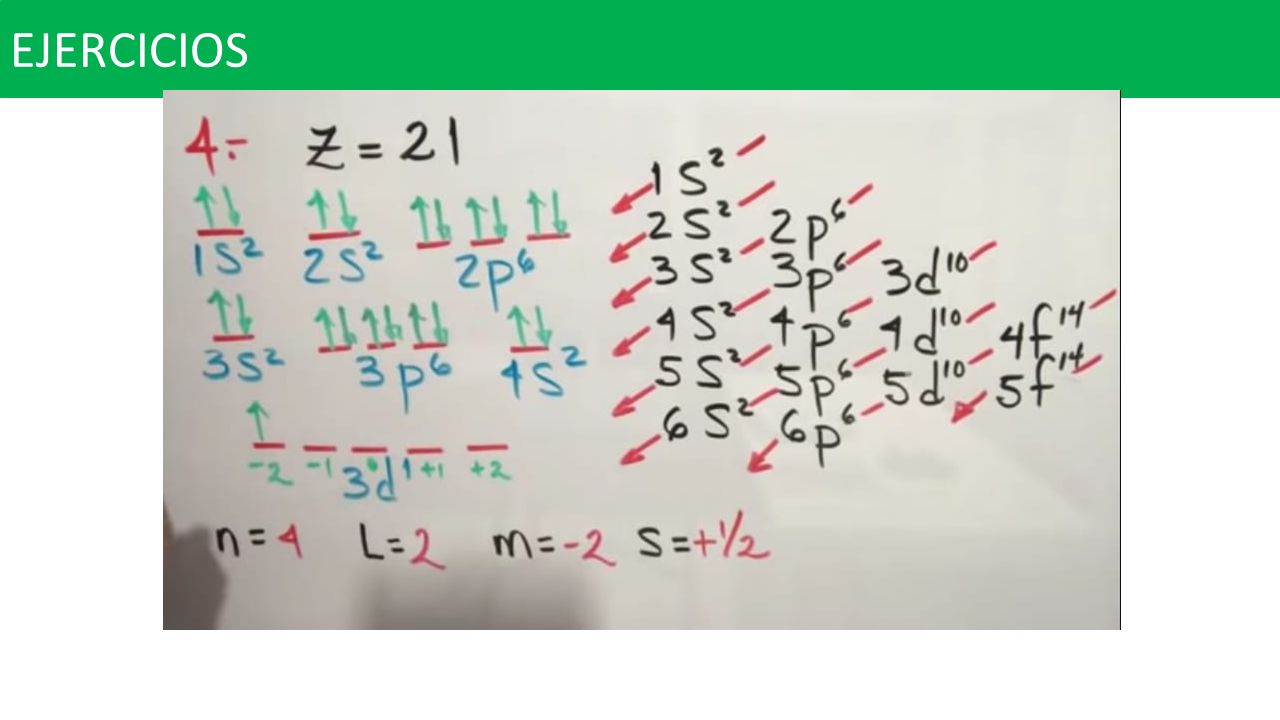 EJERCICIOS
4.- Z = 21
↑↓ ↑↓ ↑↓ ↑↓ ↑↓
1S² 2S² 2p⁶
↑↓ ↑↓ ↑↓ ↑↓ ↑↓
3S² 3p⁶ 4S²
↑
-2 -1 0 +1 +2
3d¹
n = 4 L = 2 m = -2 S = +1/2
1S²
2S² 2p⁶
3S² 3p⁶ 3d¹⁰
4S² 4p⁶ 4d¹⁰ 4f¹⁴
5S² 5p⁶ 5d¹⁰ 5f¹⁴
6S² 6p⁶